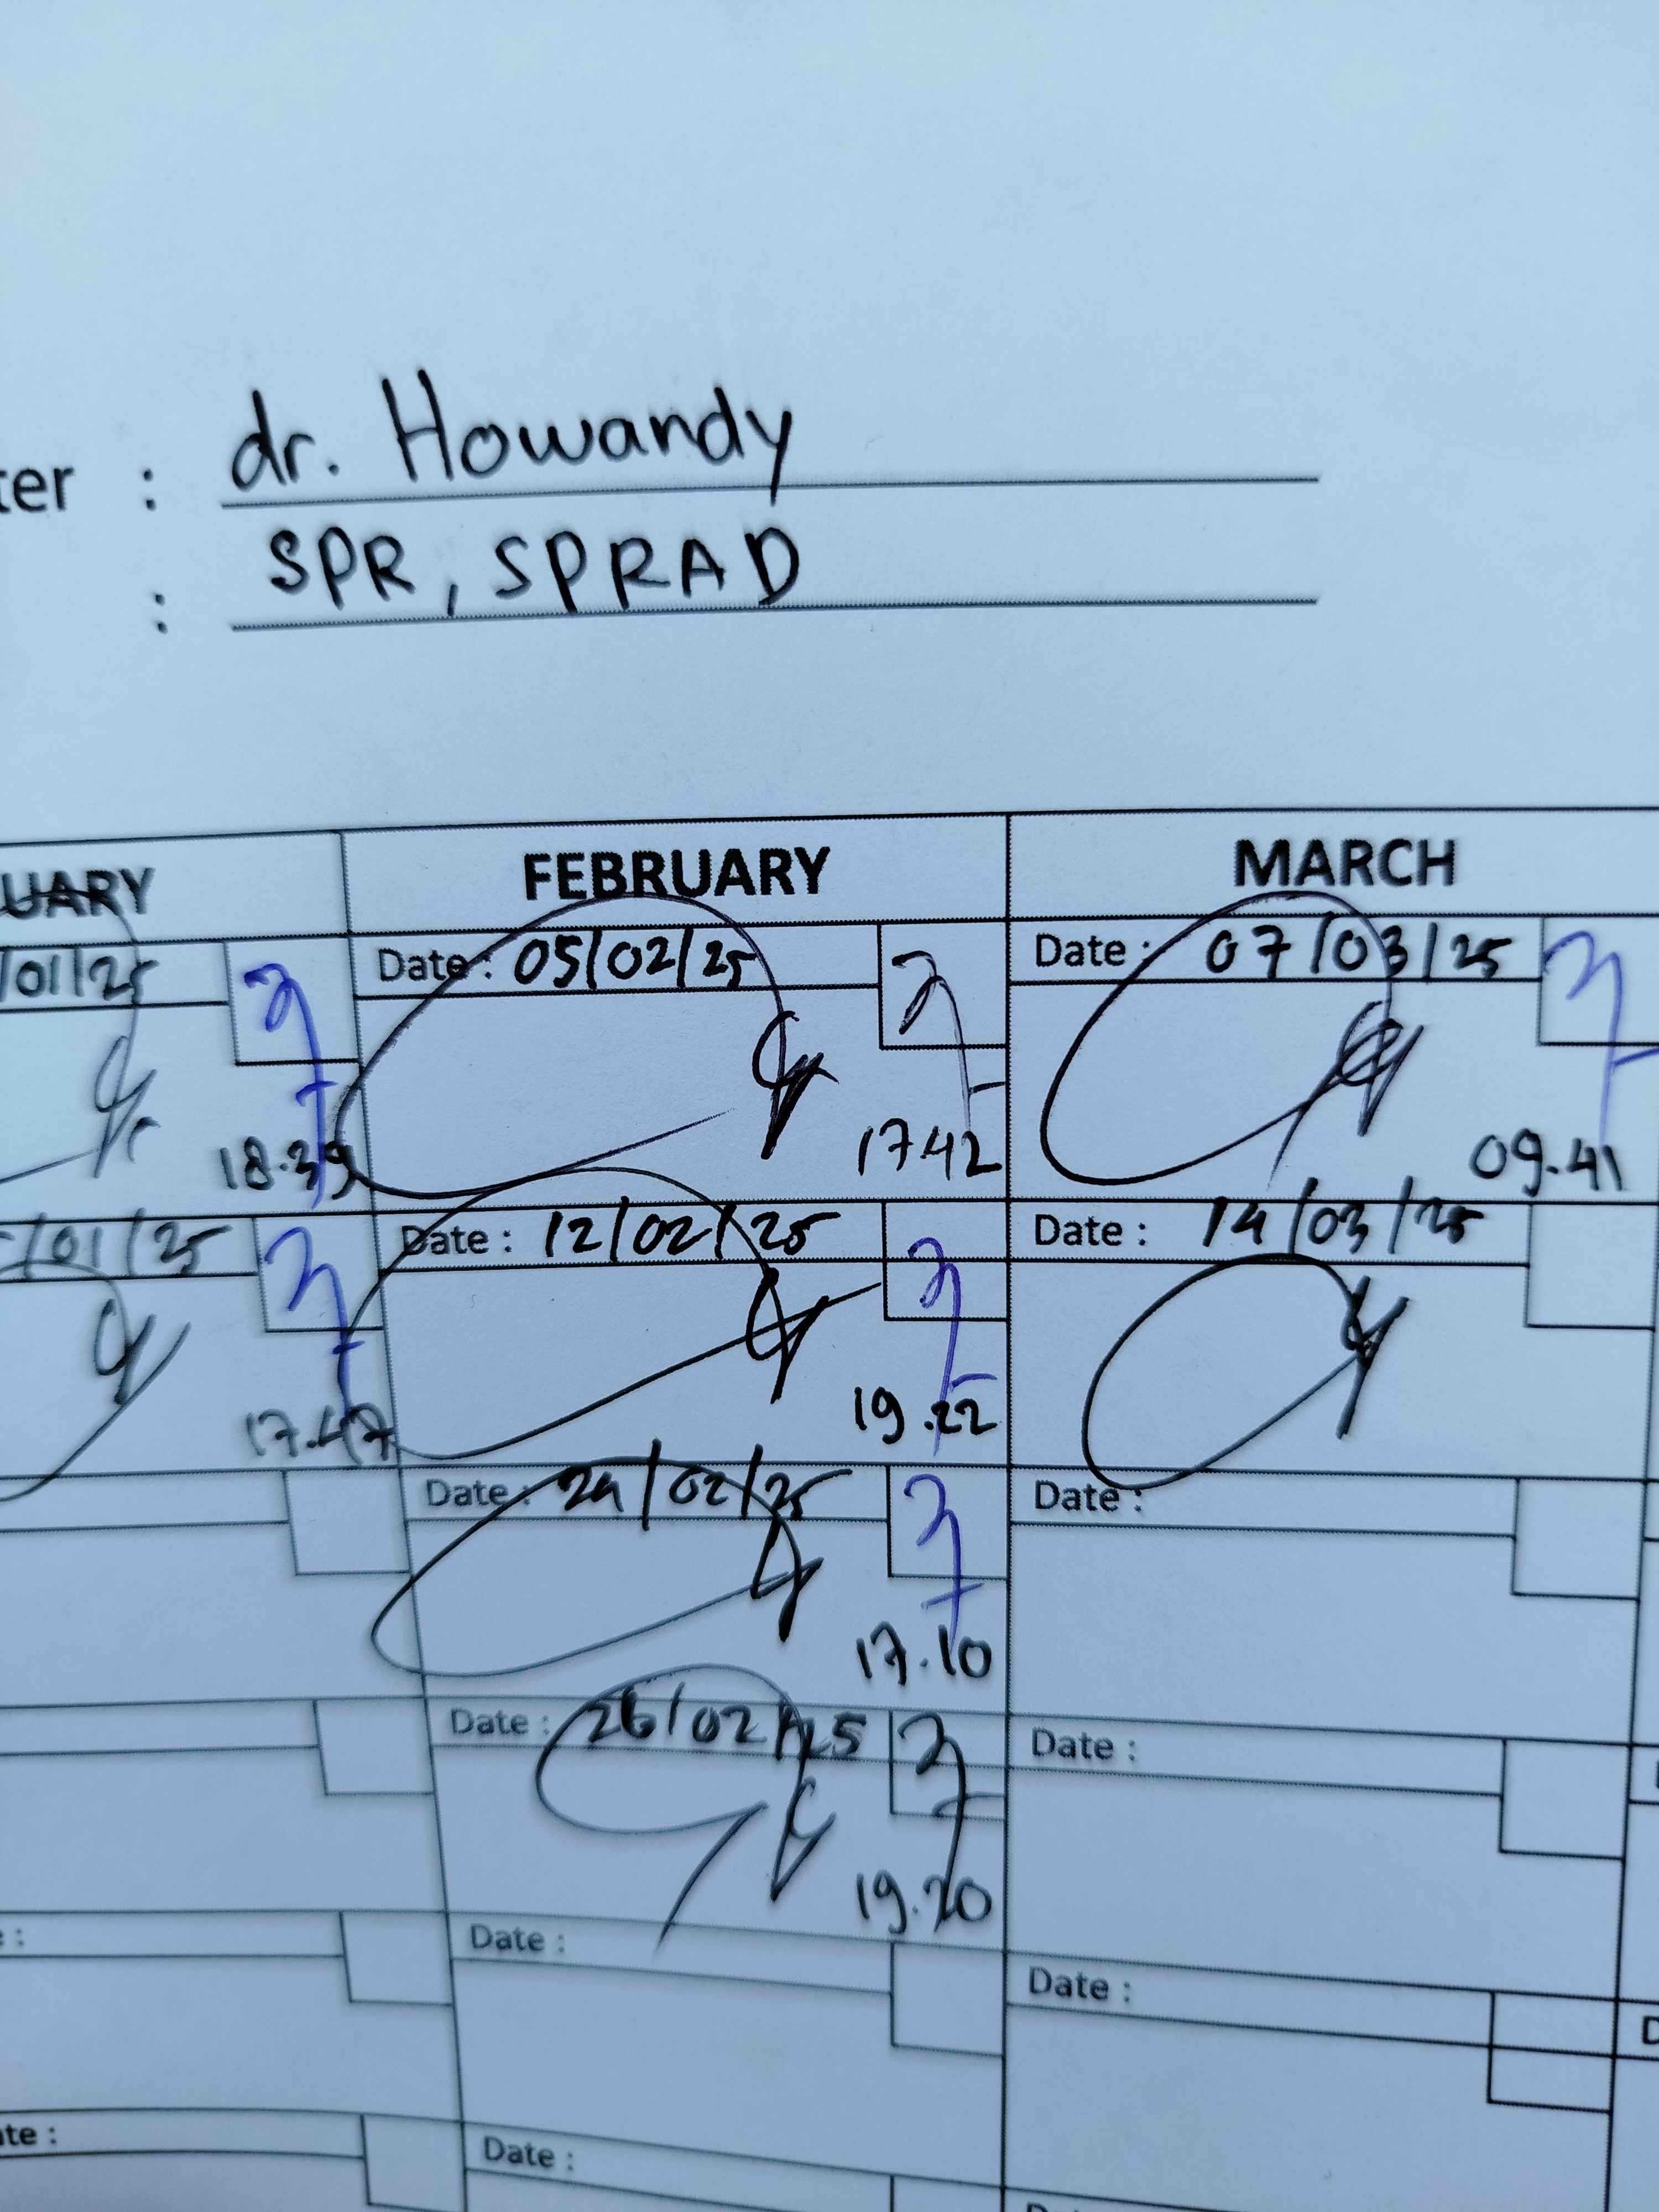 ter : dr. Howandy
: SPR, SPRAD
UARY FEBRUARY MARCH
/01/25 Date : 05/02/25 Date : 07/03/25
18.39 17.42 09.41
/01/25 Date : 12/02/25 Date : 14/03/25
17.47 19.22
Date : 24/02/25 Date :
17.10
Date : 26/02/25 Date :
19.20
e : Date : Date :
ate : Date : Dat